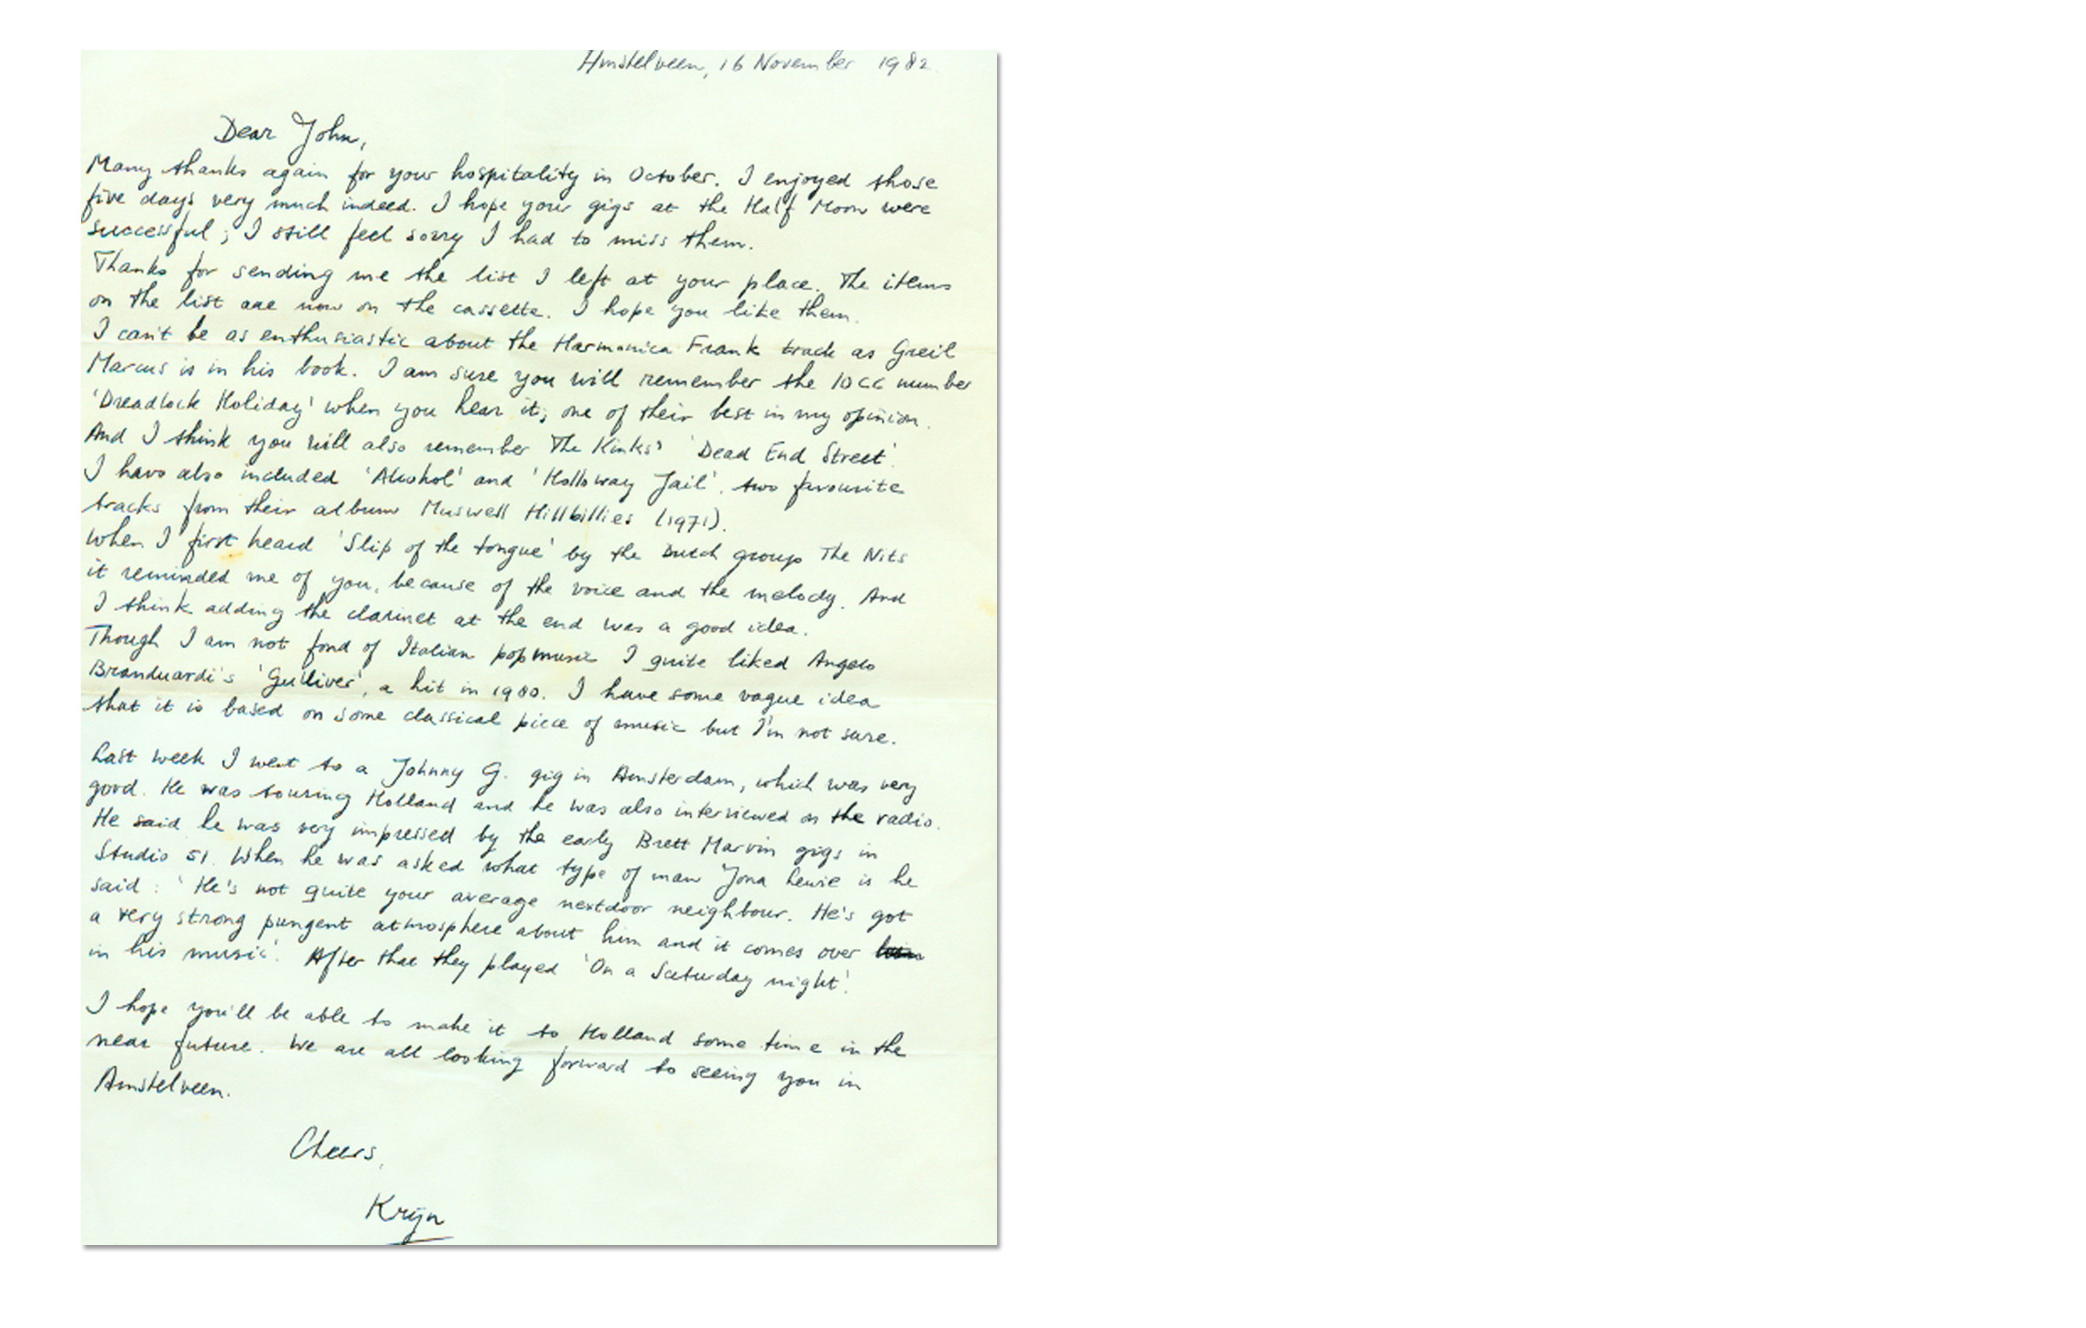 Amstelveen, 16 November 1982.
Dear John,
Many thanks again for your hospitality in October. I enjoyed those
five days very much indeed. I hope your gigs at the Half Moon were
successful; I still feel sorry I had to miss them.
Thanks for sending me the list I left at your place. The items
on the list are now on the cassette. I hope you like them.
I can't be as enthusiastic about the Harmonica Frank track as Greil
Marcus is in his book. I am sure you will remember the 10CC number
'Dreadlock Holiday' when you hear it; one of their best in my opinion.
And I think you will also remember The Kinks' 'Dead End Street'.
I have also included 'Alcohol' and 'Holloway Jail', two favourite
tracks from their album Muswell Hillbillies (1971).
When I first heard 'Slip of the tongue' by the Dutch group The Nits
it reminded me of you, because of the voice and the melody. And
I think adding the clarinet at the end was a good idea.
Though I am not fond of Italian popmusic I quite liked Angelo
Branduardi's 'Gulliver', a hit in 1980. I have some vague idea
that it is based on some classical piece of music but I'm not sure.
Last week I went to a Johnny G. gig in Amsterdam, which was very
good. He was touring Holland and he was also interviewed on the radio.
He said he was very impressed by the early Brett Marvin gigs in
Studio 51. When he was asked what type of man Jona Lewie is he
said: 'He's not quite your average nextdoor neighbour. He's got
a very strong pungent atmosphere about him and it comes over
in his music'. After that they played 'On a Saturday night'.
I hope you'll be able to make it to Holland some time in the
near future. We are all looking forward to seeing you in
Amstelveen.
Cheers,
Krijn